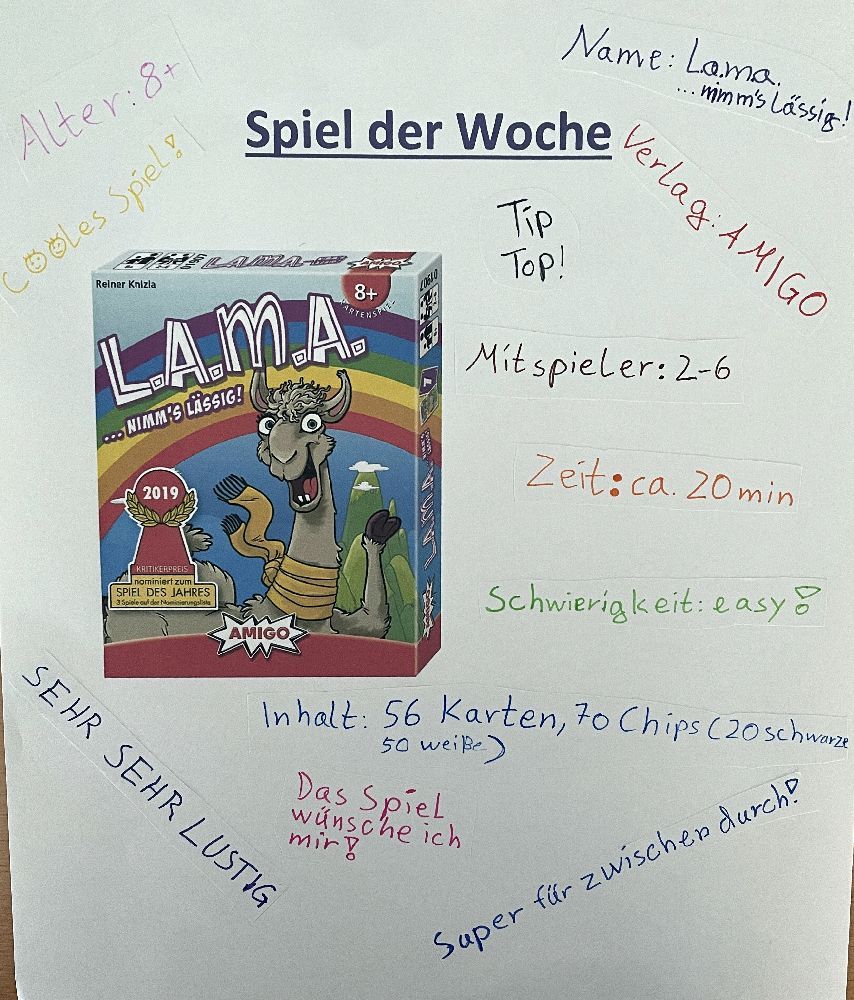 Name: L.a.m.a.
...nimm's Lässig!
Alter: 8+
Spiel der Woche
Cooles Spiel!
Verlag: AMIGO
Tip
Top!
Reiner Knizia
L.A.M.A.
8+
KARTENSPIEL
L.A.M.A.
...NIMM'S LÄSSIG!
Mitspieler: 2-6
2019
KRITIKERPREIS
nominiert zum
SPIEL DES JAHRES
3 Spiele auf der Nominierungsliste
AMIGO
L.A.M.A.
AMIGO
Zeit: ca. 20 min
Schwierigkeit: easy!
Inhalt: 56 Karten, 70 Chips (20 schwarze
50 weiße)
SEHR SEHR LUSTIG
Das Spiel
wünsche ich
mir!
Super für zwischen durch!